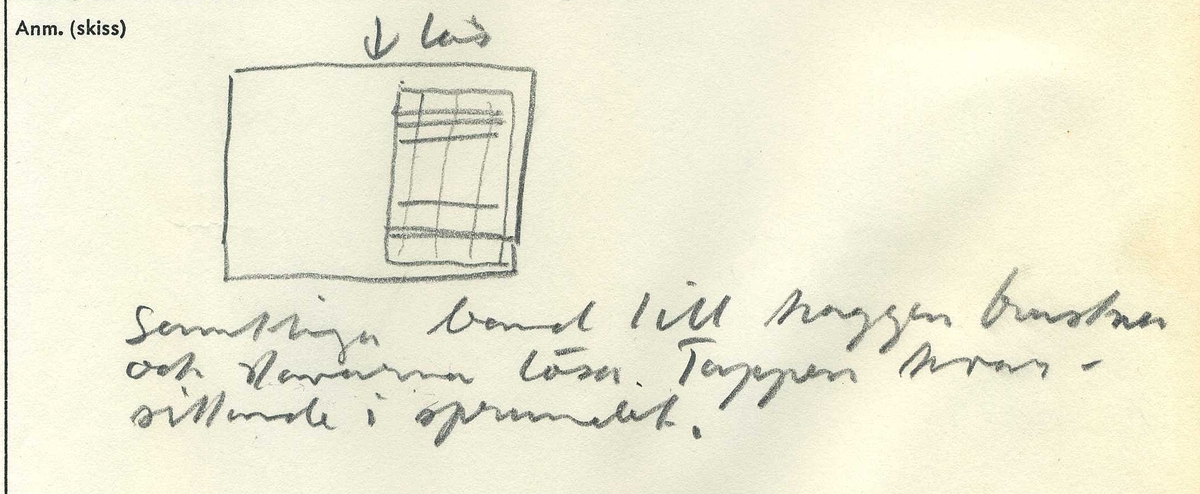 Anm. (skiss)
↓ lås
Samtliga band till kaggen brustna
och stavarna lösa. Tappen kvar-
sittande i sprundet.